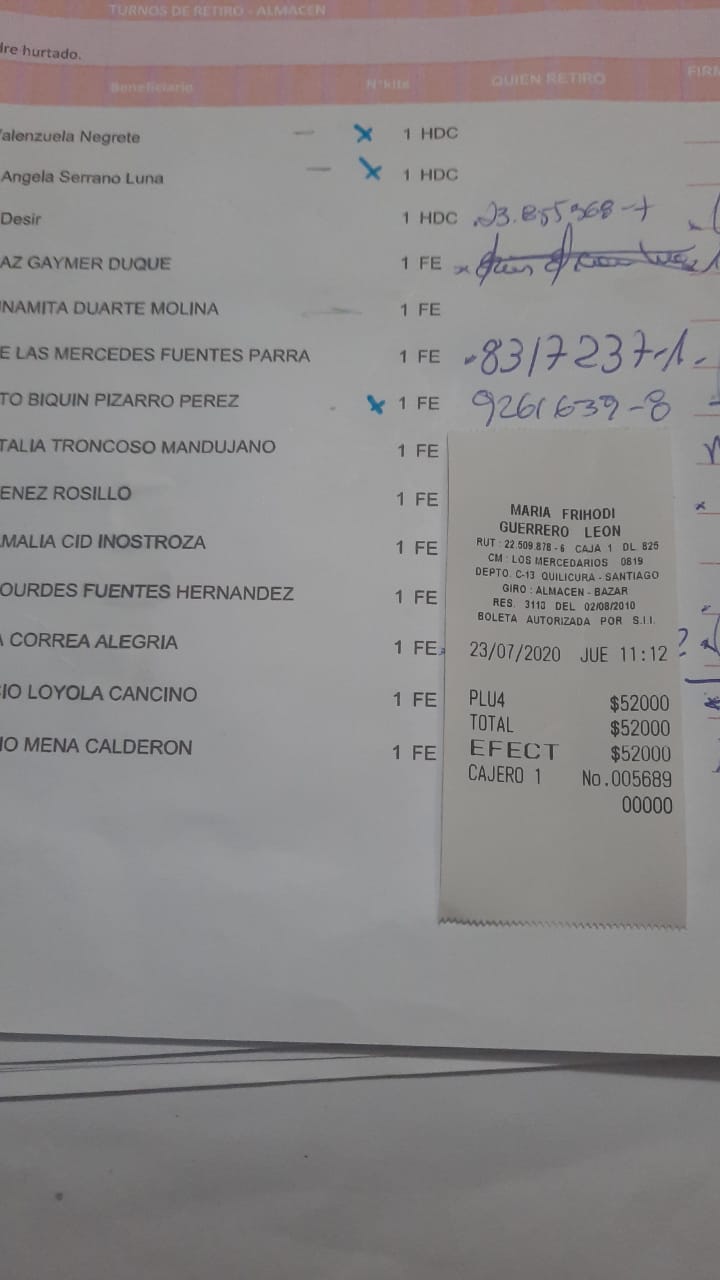 TURNOS DE RETIRO - ALMACEN
dre hurtado.
Beneficiario N°kits QUIEN RETIRO FIR
alenzuela Negrete — x 1 HDC
Angela Serrano Luna — x 1 HDC
Desir 1 HDC 23.855368-7
AZ GAYMER DUQUE 1 FE
NAMITA DUARTE MOLINA 1 FE
E LAS MERCEDES FUENTES PARRA 1 FE 8317237-1
TO BIQUIN PIZARRO PEREZ x 1 FE 9261639-8
TALIA TRONCOSO MANDUJANO 1 FE
ENEZ ROSILLO 1 FE
MALIA CID INOSTROZA 1 FE
OURDES FUENTES HERNANDEZ 1 FE
A CORREA ALEGRIA 1 FE
IO LOYOLA CANCINO 1 FE
IO MENA CALDERON 1 FE
MARIA FRIHODI
GUERRERO LEON
RUT : 22.509.878 - 6 CAJA 1 DL 825
CM : LOS MERCEDARIOS 0819
DEPTO. C-13 QUILICURA - SANTIAGO
GIRO : ALMACEN - BAZAR
RES. 3113 DEL 02/08/2010
BOLETA AUTORIZADA POR S.I.I.
23/07/2020 JUE 11:12 ?
PLU4 $52000
TOTAL $52000
EFECT $52000
CAJERO 1 No.005689
00000